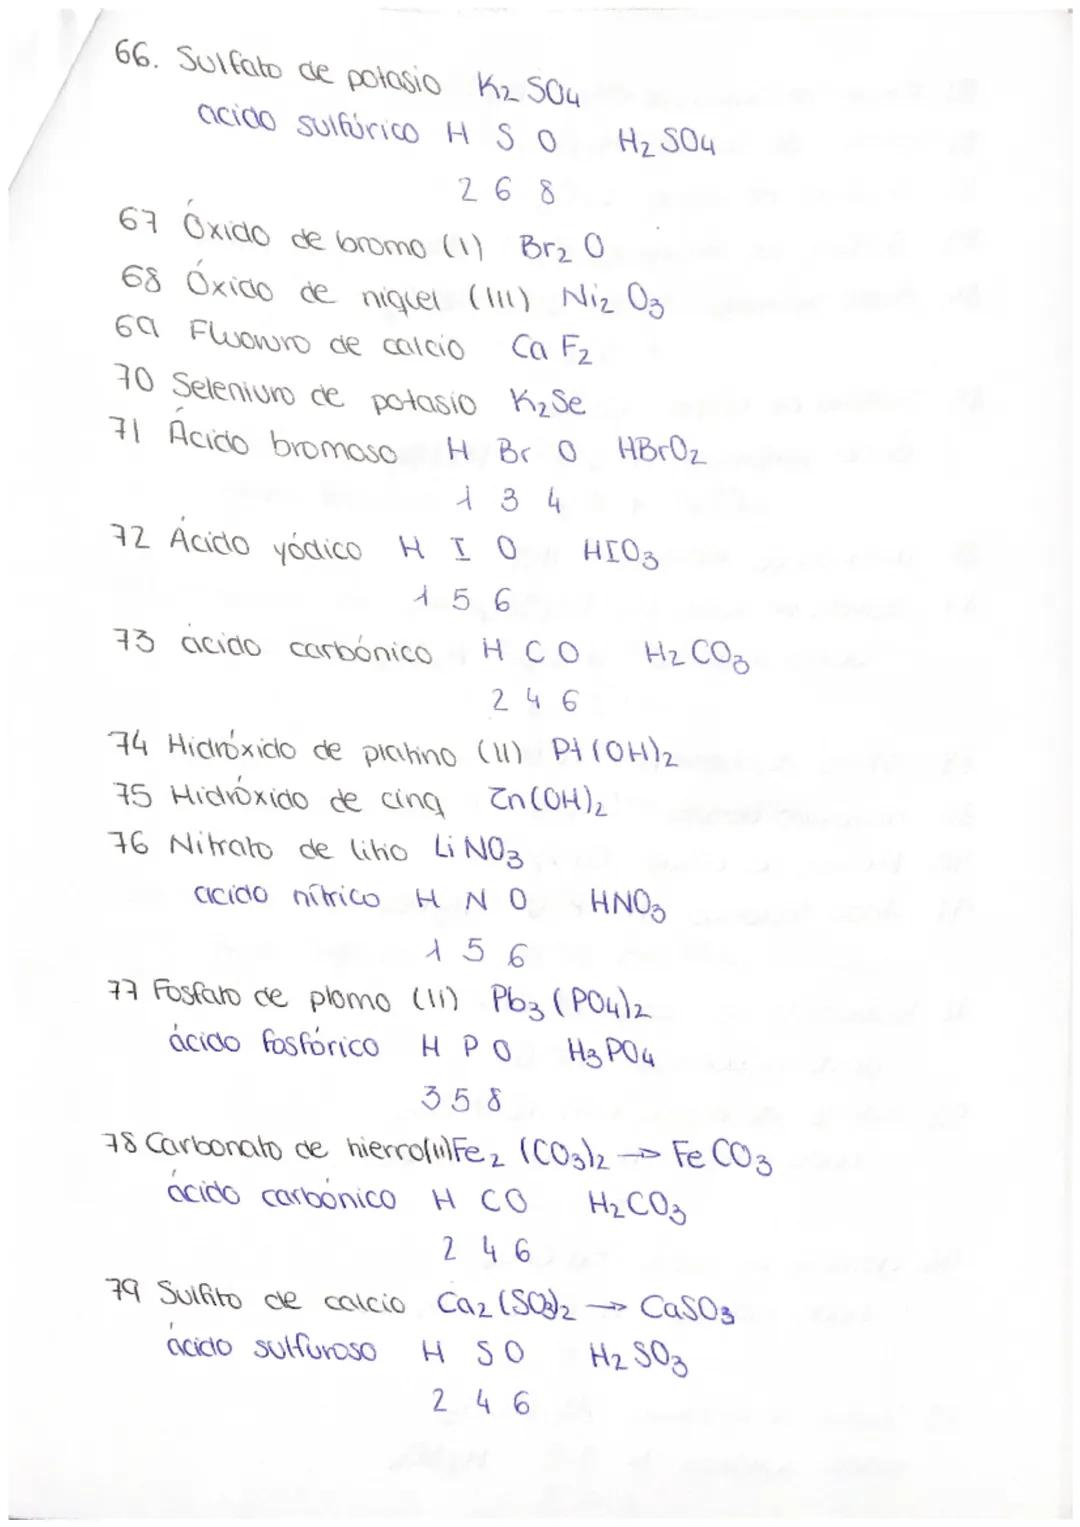 66. Sulfato de potasio K2 SO4
acido sulfúrico H S O H2 SO4
2 6 8
67 Óxido de bromo (I) Br2 O
68 Óxido de niquel (III) Ni2 O3
69 Fluoruro de calcio Ca F2
70 Seleniuro de potasio K2Se
71 Ácido bromoso H Br O HBrO2
1 3 4
72 Ácido yódico H I O HIO3
1 5 6
73 ácido carbónico H C O H2 CO3
2 4 6
74 Hidróxido de platino (II) Pt (OH)2
75 Hidróxido de cinq Zn(OH)2
76 Nitrato de litio Li NO3
acido nítrico H N O HNO3
1 5 6
77 Fosfato de plomo (II) Pb3 (PO4)2
ácido fosfórico H P O H3 PO4
3 5 8
78 Carbonato de hierro(II) Fe2 (CO3)2 → Fe CO3
ácido carbónico H C O H2CO3
2 4 6
79 Sulfito de calcio Ca2 (SO3)2 → CaSO3
ácido sulfuroso H S O H2 SO3
2 4 6